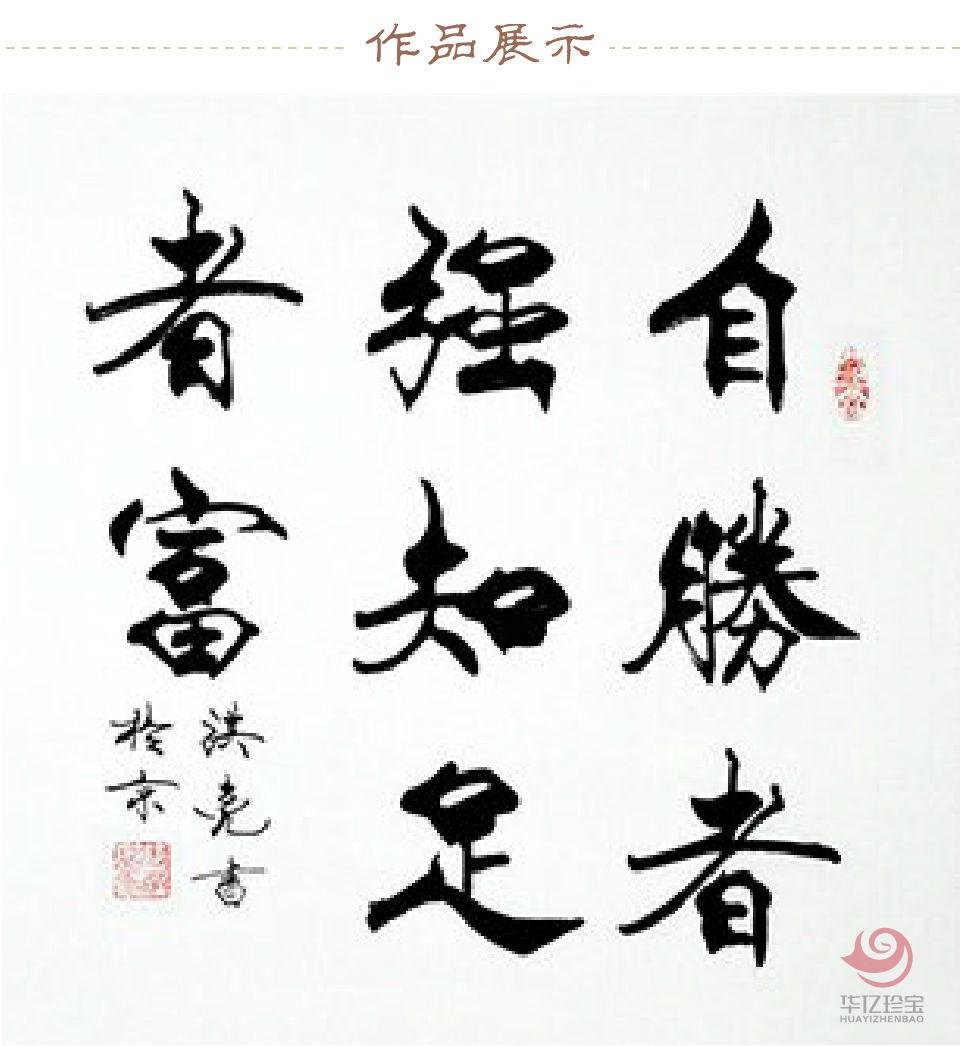 作品展示
自勝者
強知足
者富
洪亮書
於京
华亿珍宝
HUAYIZHENBAO